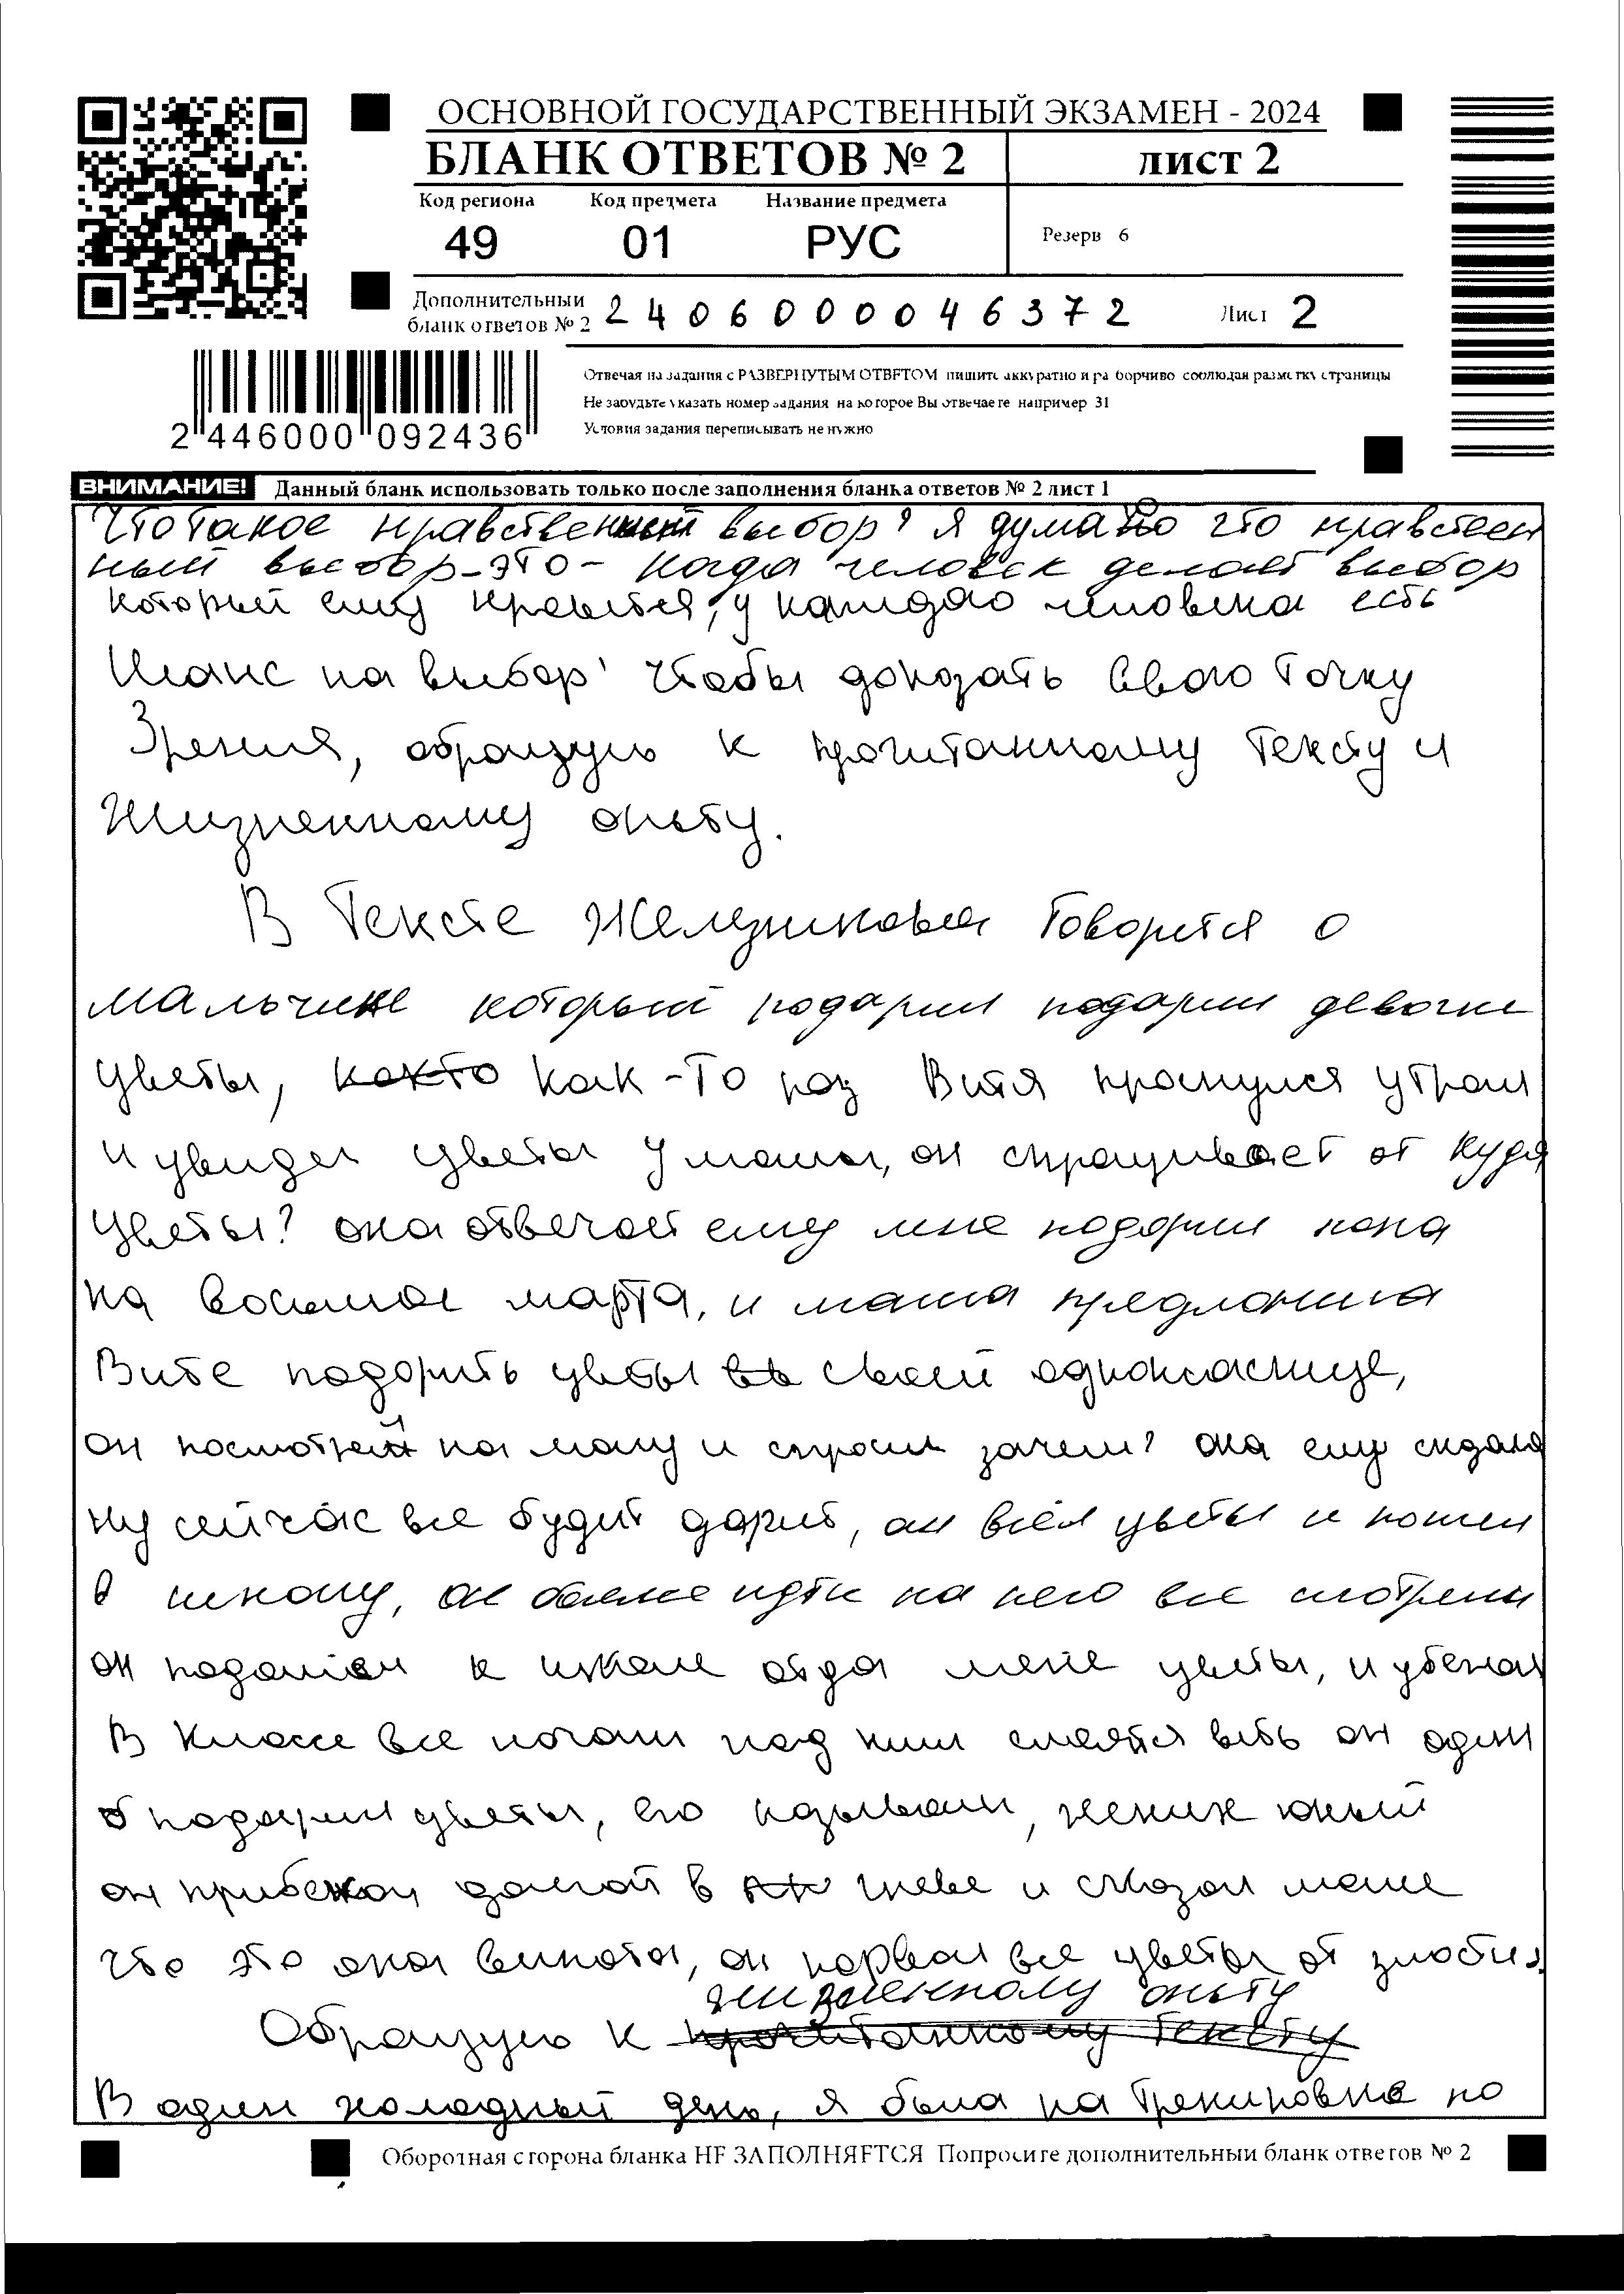 ОСНОВНОЙ ГОСУДАРСТВЕННЫЙ ЭКЗАМЕН - 2024
БЛАНК ОТВЕТОВ № 2
ЛИСТ 2
Код региона Код предмета Название предмета
49 01 РУС
Резерв 6
Дополнительный
бланк ответов № 2
2406000046372
Лист 2
2 446000 092436
Отвечая на задания с РАЗВЕРНУТЫМ ОТВЕТОМ пишите аккуратно и разборчиво соблюдая разметку страницы
Не забудьте указать номер задания на которое Вы отвечаете например 31
Условия задания переписывать не нужно
ВНИМАНИЕ! Данный бланк использовать только после заполнения бланка ответов № 2 лист 1
Что такое нравственный выбор? я думаю что нравствен
ный выбор-это- когда человек делает выбор
который ему нравится, у каждого человека есть
Шанс на выбор' чтобы доказать свою точку
Зрения, обращусь к прочитанному тексту и
Жизненному опыту.
В Тексте Железникова Говорится о
мальчике который подарил подарил девочке
цветы, как-то раз Витя проснулся утром
и увидел цветы у мамы, он спрашивает от куда
цветы? она отвечает ему мне подарил папа
на восьмое марта, и мама предложила
Вите подарить цветы своей однокласнице,
он посмотрел на маму и спросил зачем? она ему сказала
ну сейчас все будут дарить, он взял цветы и пошел
в школу, он идти на него все смотрели
он подошел к школе отдал мене цветы, и убежал
В Классе все начали над ним смеятся веть он один
подарил цветы, его называли, жених юный
он прибежал домой в гневе и сказал маме
что это она виновата, он порвал все цветы от злобы.
Обращусь к жизненному опыту
В один холодный день, я была на тренировке по
Оборотная сторона бланка НЕ ЗАПОЛНЯЕТСЯ Попросите дополнительный бланк ответов № 2